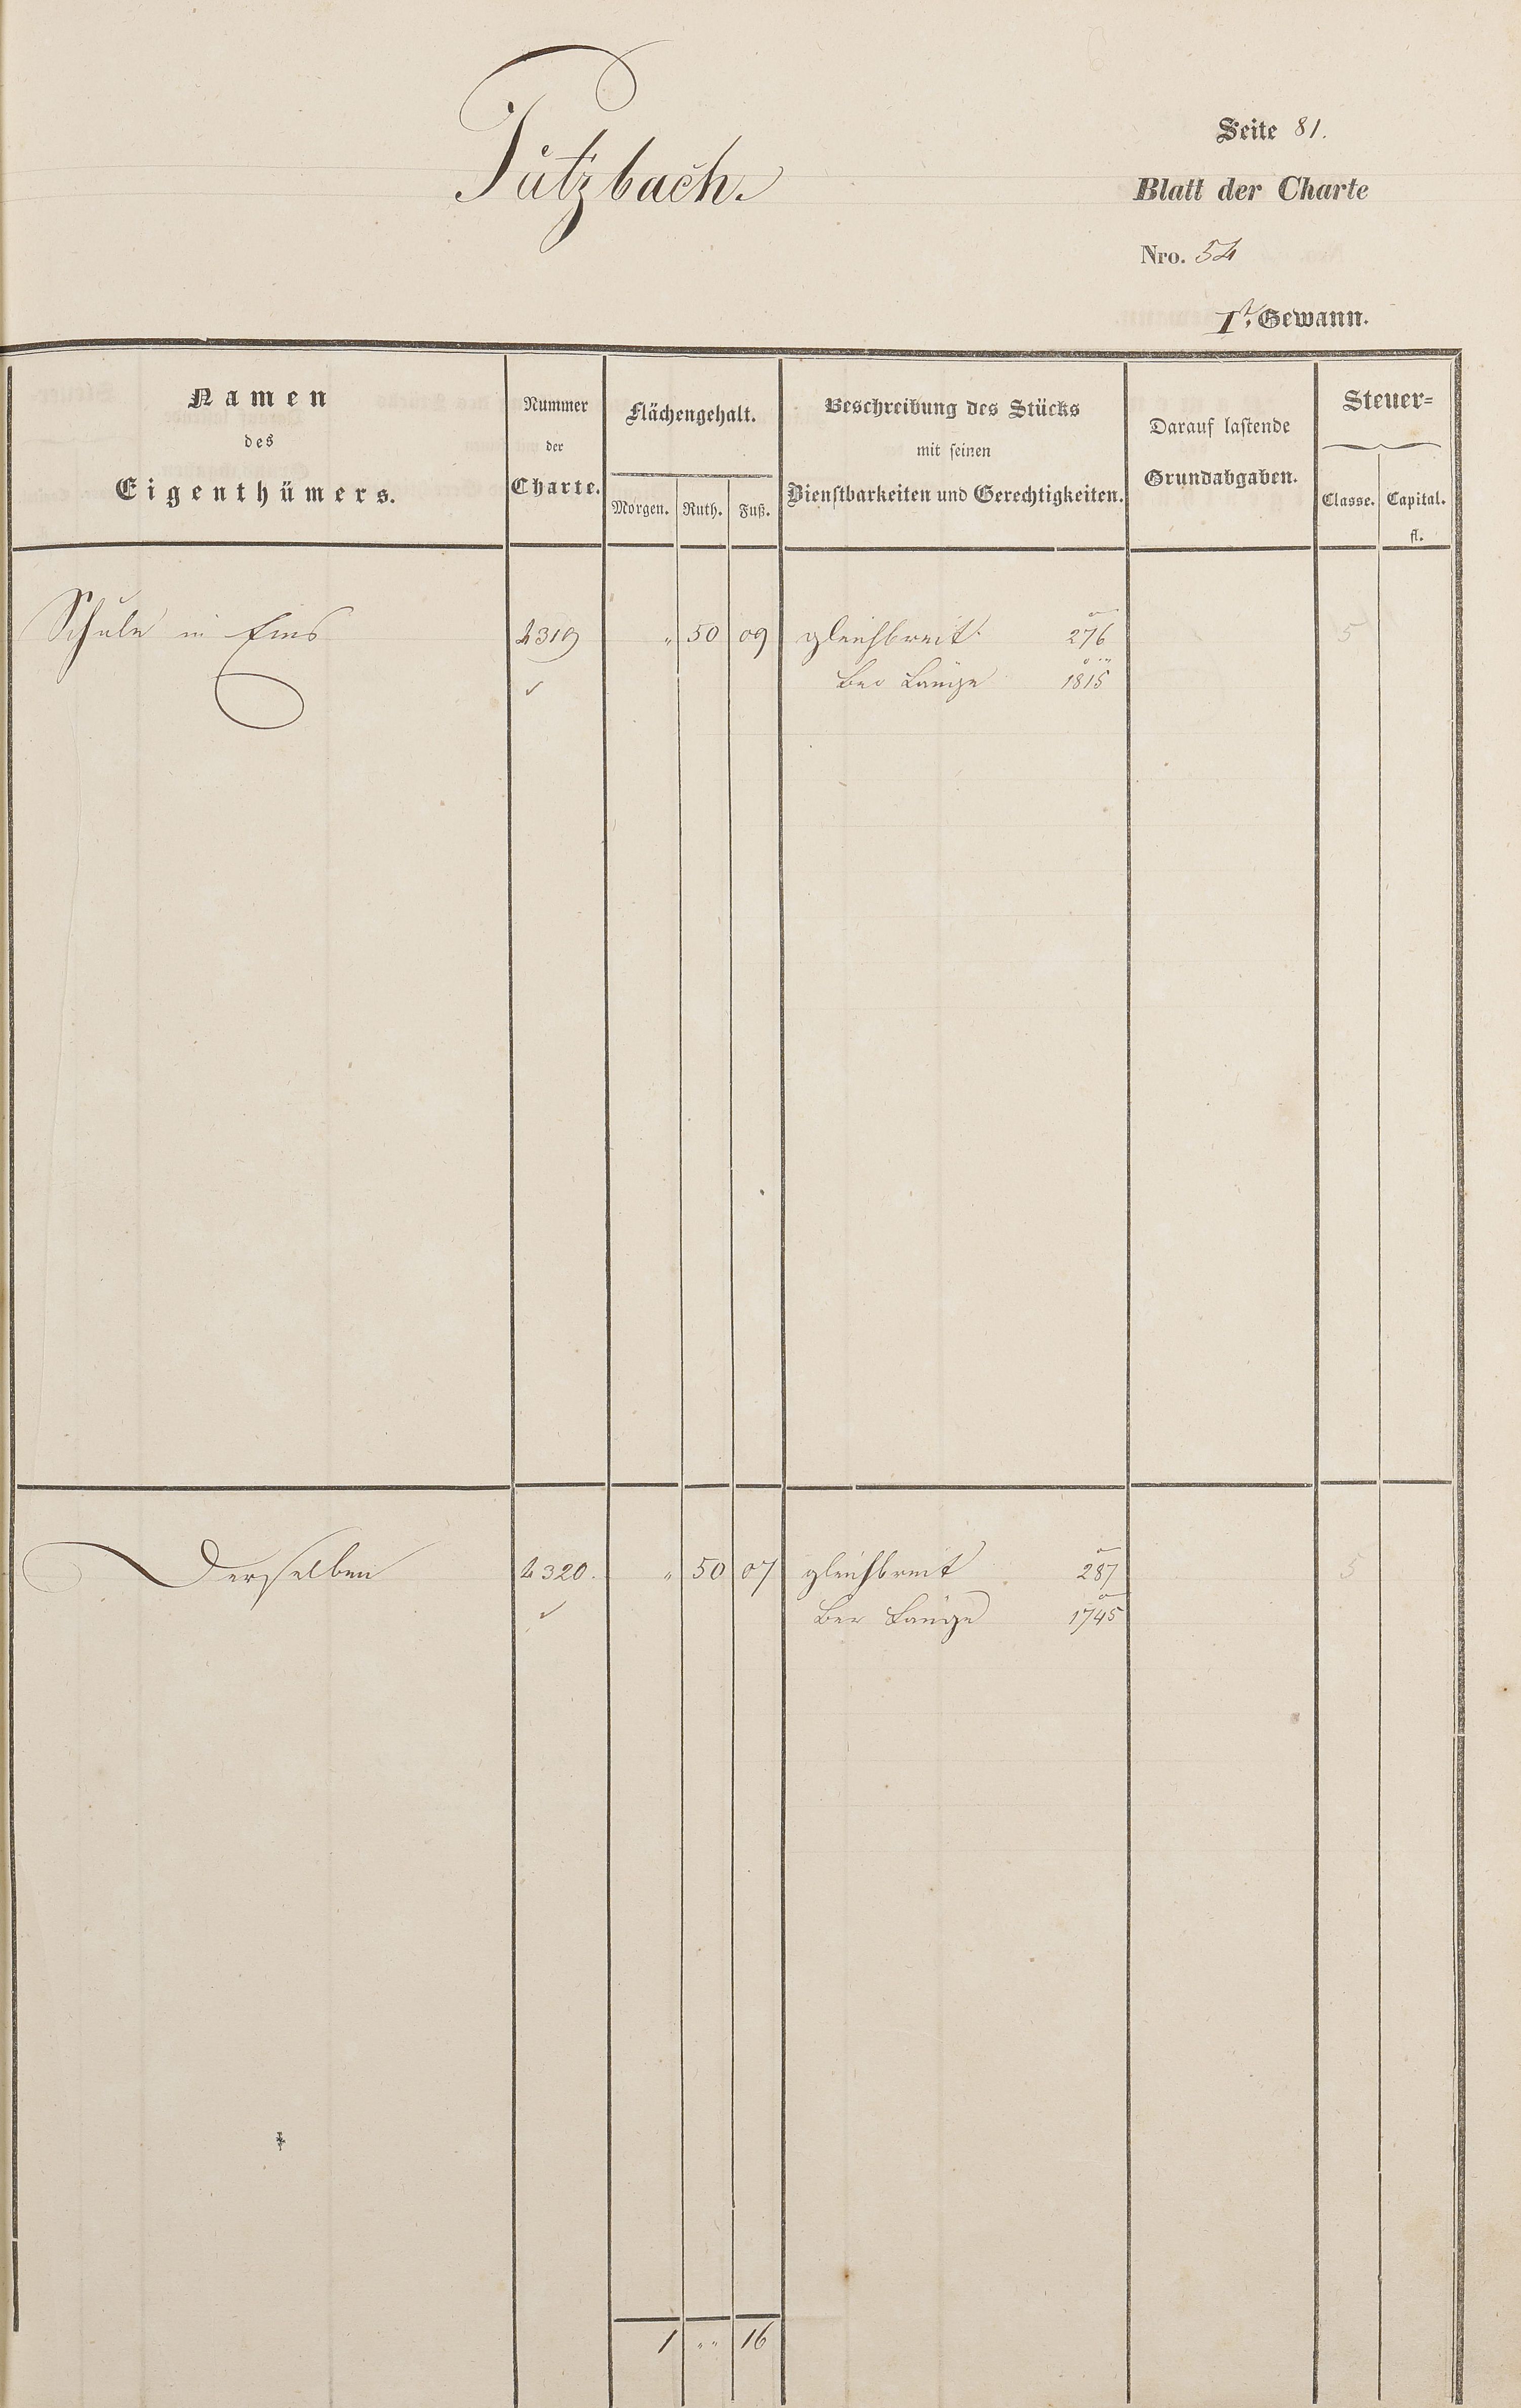 Pützbach.
Seite 81.
Blatt der Charte
Nro. 54
Iᵗ. Gewann.
Namen
des
Eigenthümers.
Nummer
der
Charte.
Flächengehalt.
Morgen. Ruth. Fuß.
Beschreibung des Stücks
mit seinen
Dienstbarkeiten und Gerechtigkeiten.
Darauf lastende
Grundabgaben.
Steuer=
Classe. Capital.
fl.
Schule in Ems 4319 " 50 09 gleichbreit 276 5
Länge 1815
Derselben 4320. " 50 07 gleichbreit 287 5
Länge 1745
1 " " 16